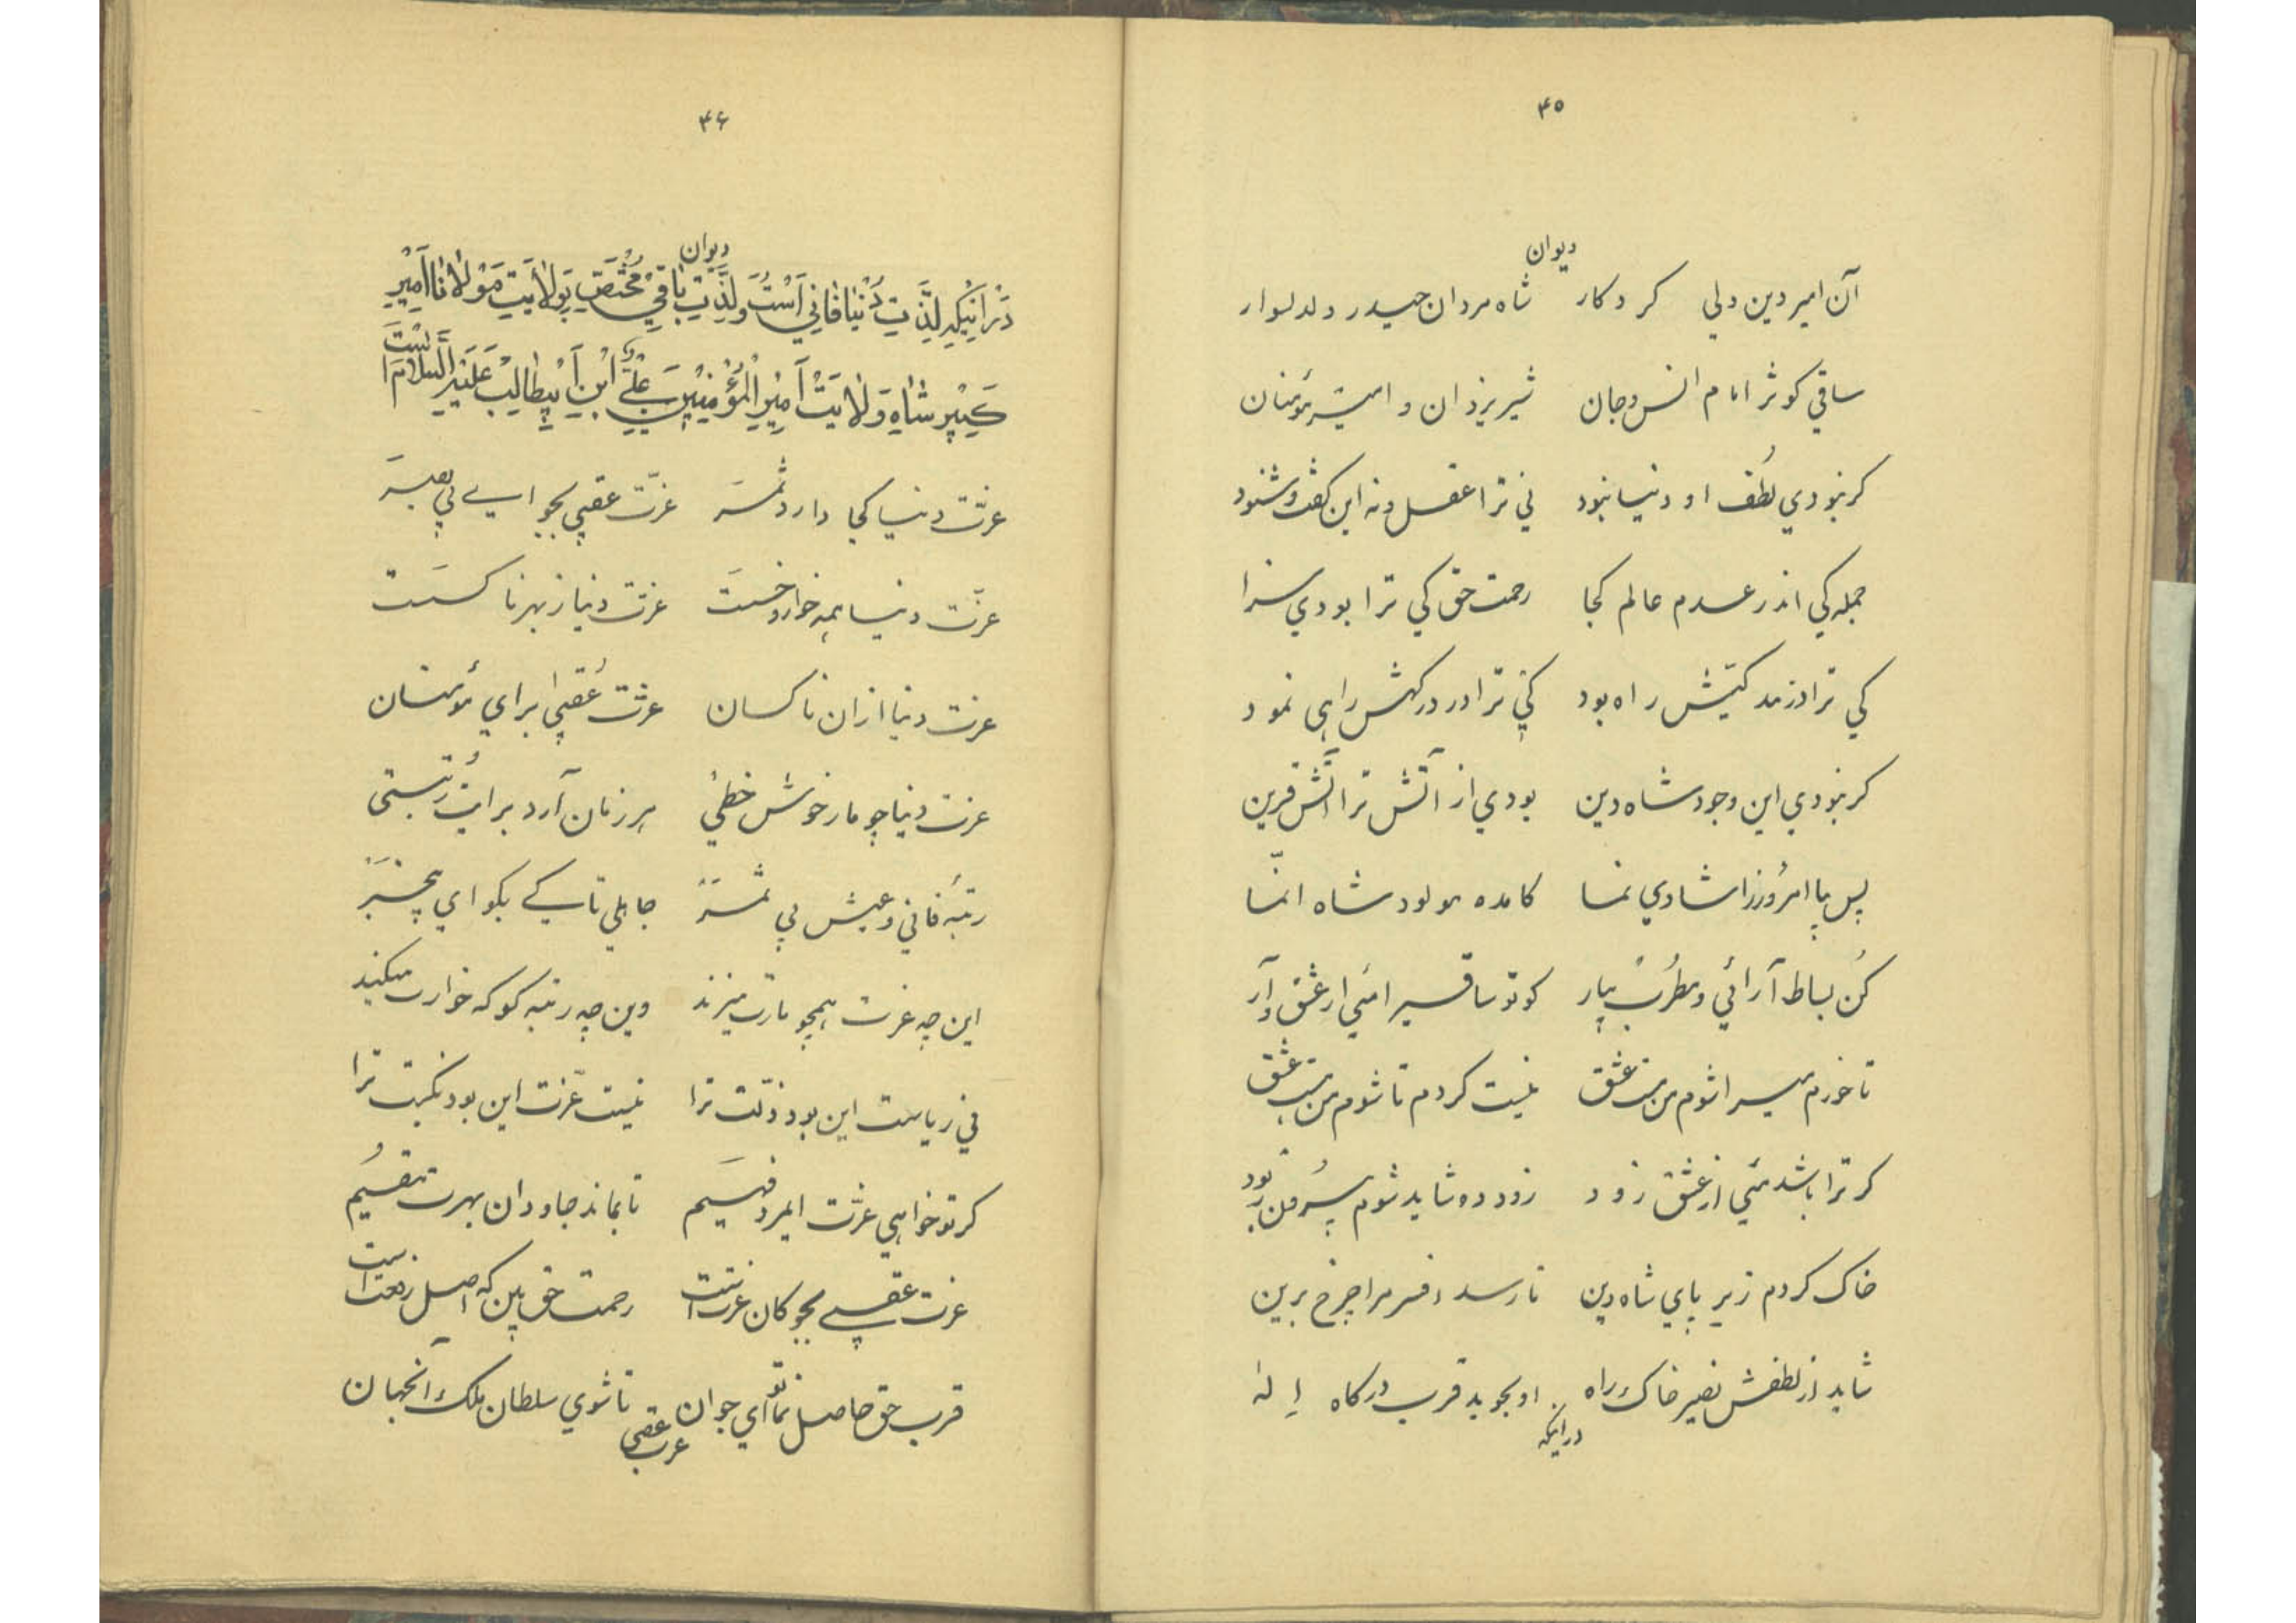 ۴۵
دیوان
آن امیر دین ولی کردکار شاه مردان حیدر دلدلسوار
ساقی کوثر امام انس و جان شیر یزدان و امیر مؤمنان
کر نبودی لُطف او دنیا نبود نی ترا عقل و نه این کفت و شنود
جمله کی اندر عدم عالم کجا رحمت حق کی ترا بودی سزا
کی ترا در راه بود کی ترا در درکهش راهی نمود
کر نبودی این وجود شاه دین بودی از آتش ترا آتش قرین
پس بپا امرُوز را شادی نما کامده مولود شاه انّما
کُن بساط آرائی و مطرُب بیار کو تو ساقی را مئی از عشق آر
تا خورم می را شوم من مست عشق نیست کردم تا شوم من هست عشق
کر ترا باشد مئی از عشق زود زود ده شاید شوم من
خاک کردم زیر پای شاه دین تا رسد افسر مرا چرخ برین
شاید از لطفش نصیر خاک راه او بجوید قرب درکاه إله
در اینکه
۴۶
دیوان
دَر اینکِه لذَّتِ دُنیا فانی اَسْت وَ لذَّتِ باقی مُختَصّ بِوِلایَتِ مَوْلانا اَمیرِ
شاهِ وَلایَتْ اَمیرِ الْمُؤْمِنینَ عَلیِّ ابْنِ اَبیطالِبْ عَلَیْهِ السَّلامْ اَسْتْ
عزّت دنیا کجا دارد ثمَر عزّت عقبی بجو ای بی بصَر
عزّت دنیا همه خوار و خسَت عزّت دنیا ز بهر ناکسَت
عزت دنیا از آن ناکسان عزّت عُقبی برای مؤمنان
عزت دنیا چو مار خوش خطی هر زمان آرد برایت رُتبتی
رتبهٔ فانی و عیش بی ثمَر جاهلی تا کی بکو ای بیخبَر
این چه عزت همچو مارت میزند وین چه رتبه کو که خوارت میکند
نی ریاست این بود ذلّت ترا نیست عزّت این بود نکبت ترا
کر تو خواهی عزّت ایمرد فهیم تا بماند جاودان بهرت مُقیم
عزت عقبی بجو کان عزت است رحمت حق بین که اصل رفعت است
قرب حق حاصل نما تو ای جوان تا شوی سلطان ملک آنجهان
عزت عقبی